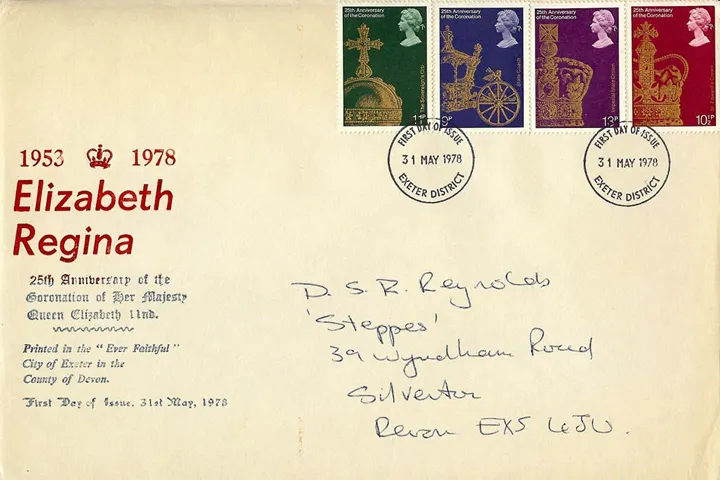 25th Anniversary
of the Coronation
The Sovereign's Orb
11p
25th Anniversary
of the Coronation
State Coach
9p
25th Anniversary
of the Coronation
Imperial State Crown
13p
25th Anniversary
of the Coronation
St. Edward's Crown
10½p
FIRST DAY OF ISSUE
31 MAY 1978
EXETER DISTRICT
FIRST DAY OF ISSUE
31 MAY 1978
EXETER DISTRICT
1953 1978
Elizabeth
Regina
25th Anniversary of the
Coronation of Her Majesty
Queen Elizabeth 11nd.
Printed in the "Ever Faithful"
City of Exeter in the
County of Devon.
First Day of Issue. 31st May, 1978
D. S. R. Reynolds
'Steppes'
39 Wyndham Road
Silverton
Devon EX5 4JU.